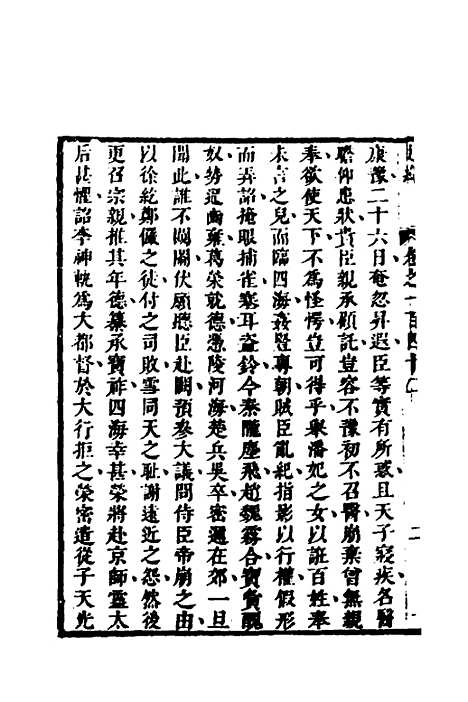 卷之一百四十八
康豫二十六日奄忽昇遐臣等實有所惑且天子寢疾名醫
瞻仰患狀貴臣親承顧託豈容不豫初不召醫崩棄曾無親
奉欲使天下不爲怪愕豈可得乎舉潘妃之女以誑百姓奉
未言之兒而臨四海姦豎專朝賊臣亂紀指影以行權假形
而弄詔掩眼捕雀塞耳盜鈴今秦隴塵飛趙魏霧合寶賁醜
奴勢逼豳雍葛榮就德憑陵河海楚兵吳卒密邇在郊一旦
聞此誰不闚闟伏願聽臣赴闕預參大議問侍臣帝崩之由
以徐紇鄭儼之徒付之司敗雪同天之恥謝遠近之怨然後
更召宗親推其年德纂承寶祚四海幸甚榮將赴京師靈太
后甚懼詔李神軌爲大都督於大行拒之榮密遣從子天光